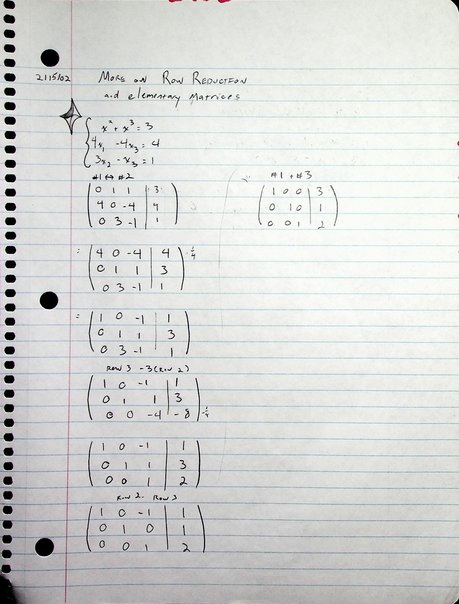 2/15/02 More on Row Reduction
and elementary Matrices
x² + x³ = 3
4x₁ - 4x₃ = 4
3x₂ - x₃ = 1
#1 ↔ #2
0 1 1 | 3
4 0 -4 | 4
0 3 -1 | 1
= 4 0 -4 | 4 · 1/4
0 1 1 | 3
0 3 -1 | 1
= 1 0 -1 | 1
0 1 1 | 3
0 3 -1 | 1
Row 3 - 3(Row 2)
1 0 -1 | 1
0 1 1 | 3
0 0 -4 | -8 · -1/4
1 0 -1 | 1
0 1 1 | 3
0 0 1 | 2
Row 2 - Row 3
1 0 -1 | 1
0 1 0 | 1
0 0 1 | 2
#1 + #3
1 0 0 | 3
0 1 0 | 1
0 0 1 | 2